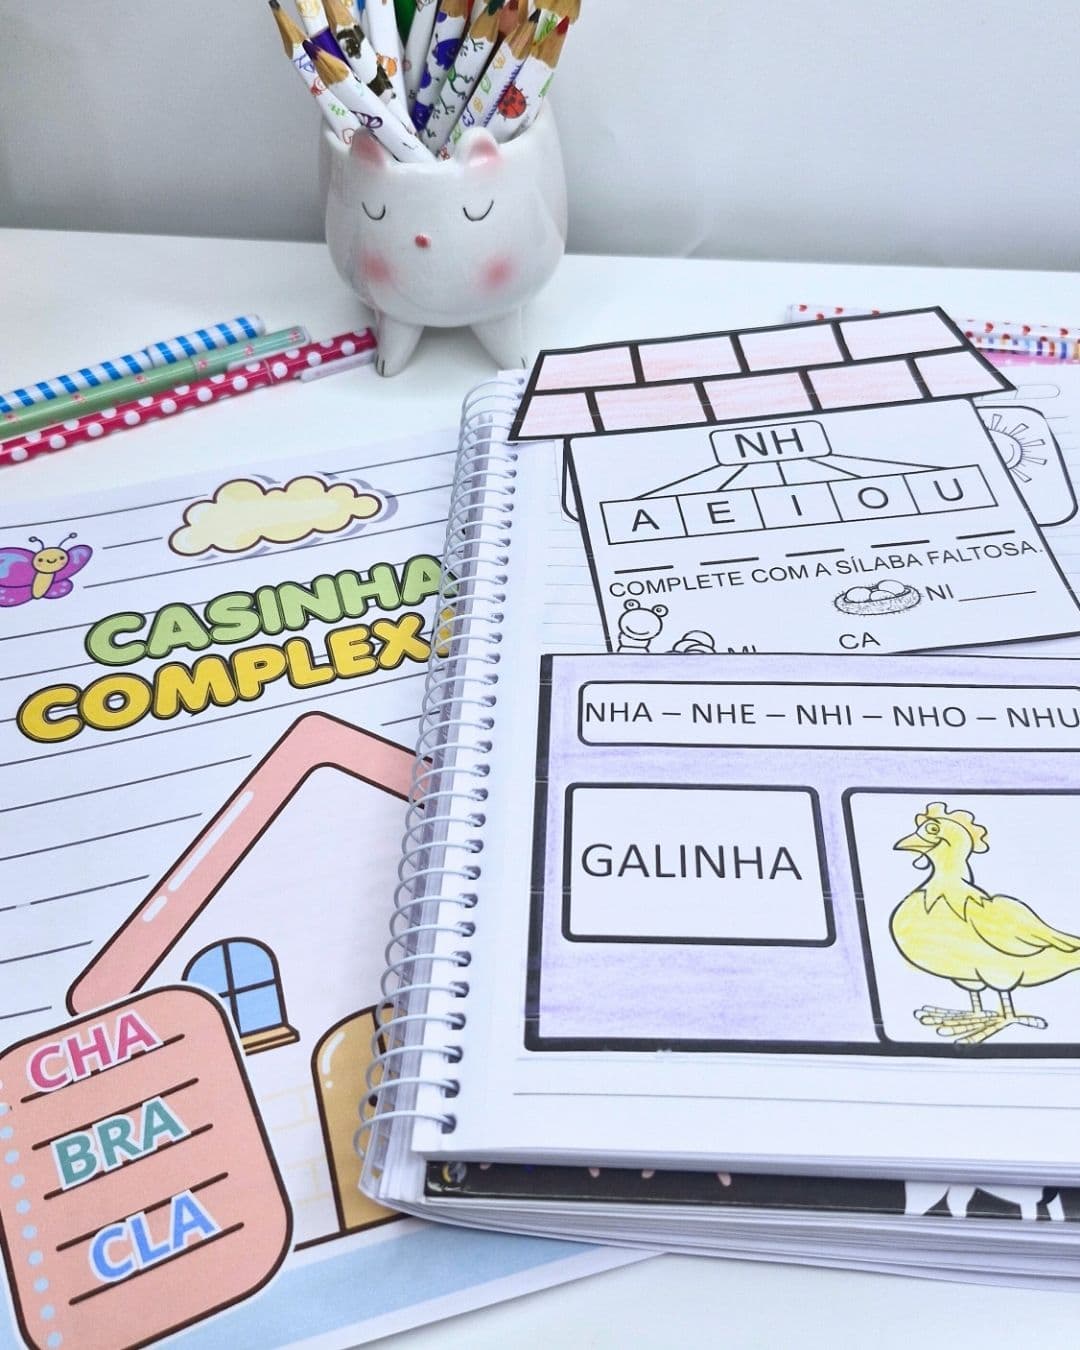 CASINHA
COMPLEX
CHA
BRA
CLA
NH
A E I O U
COMPLETE COM A SÍLABA FALTOSA.
NI
CA
NHA – NHE – NHI – NHO – NHU
GALINHA